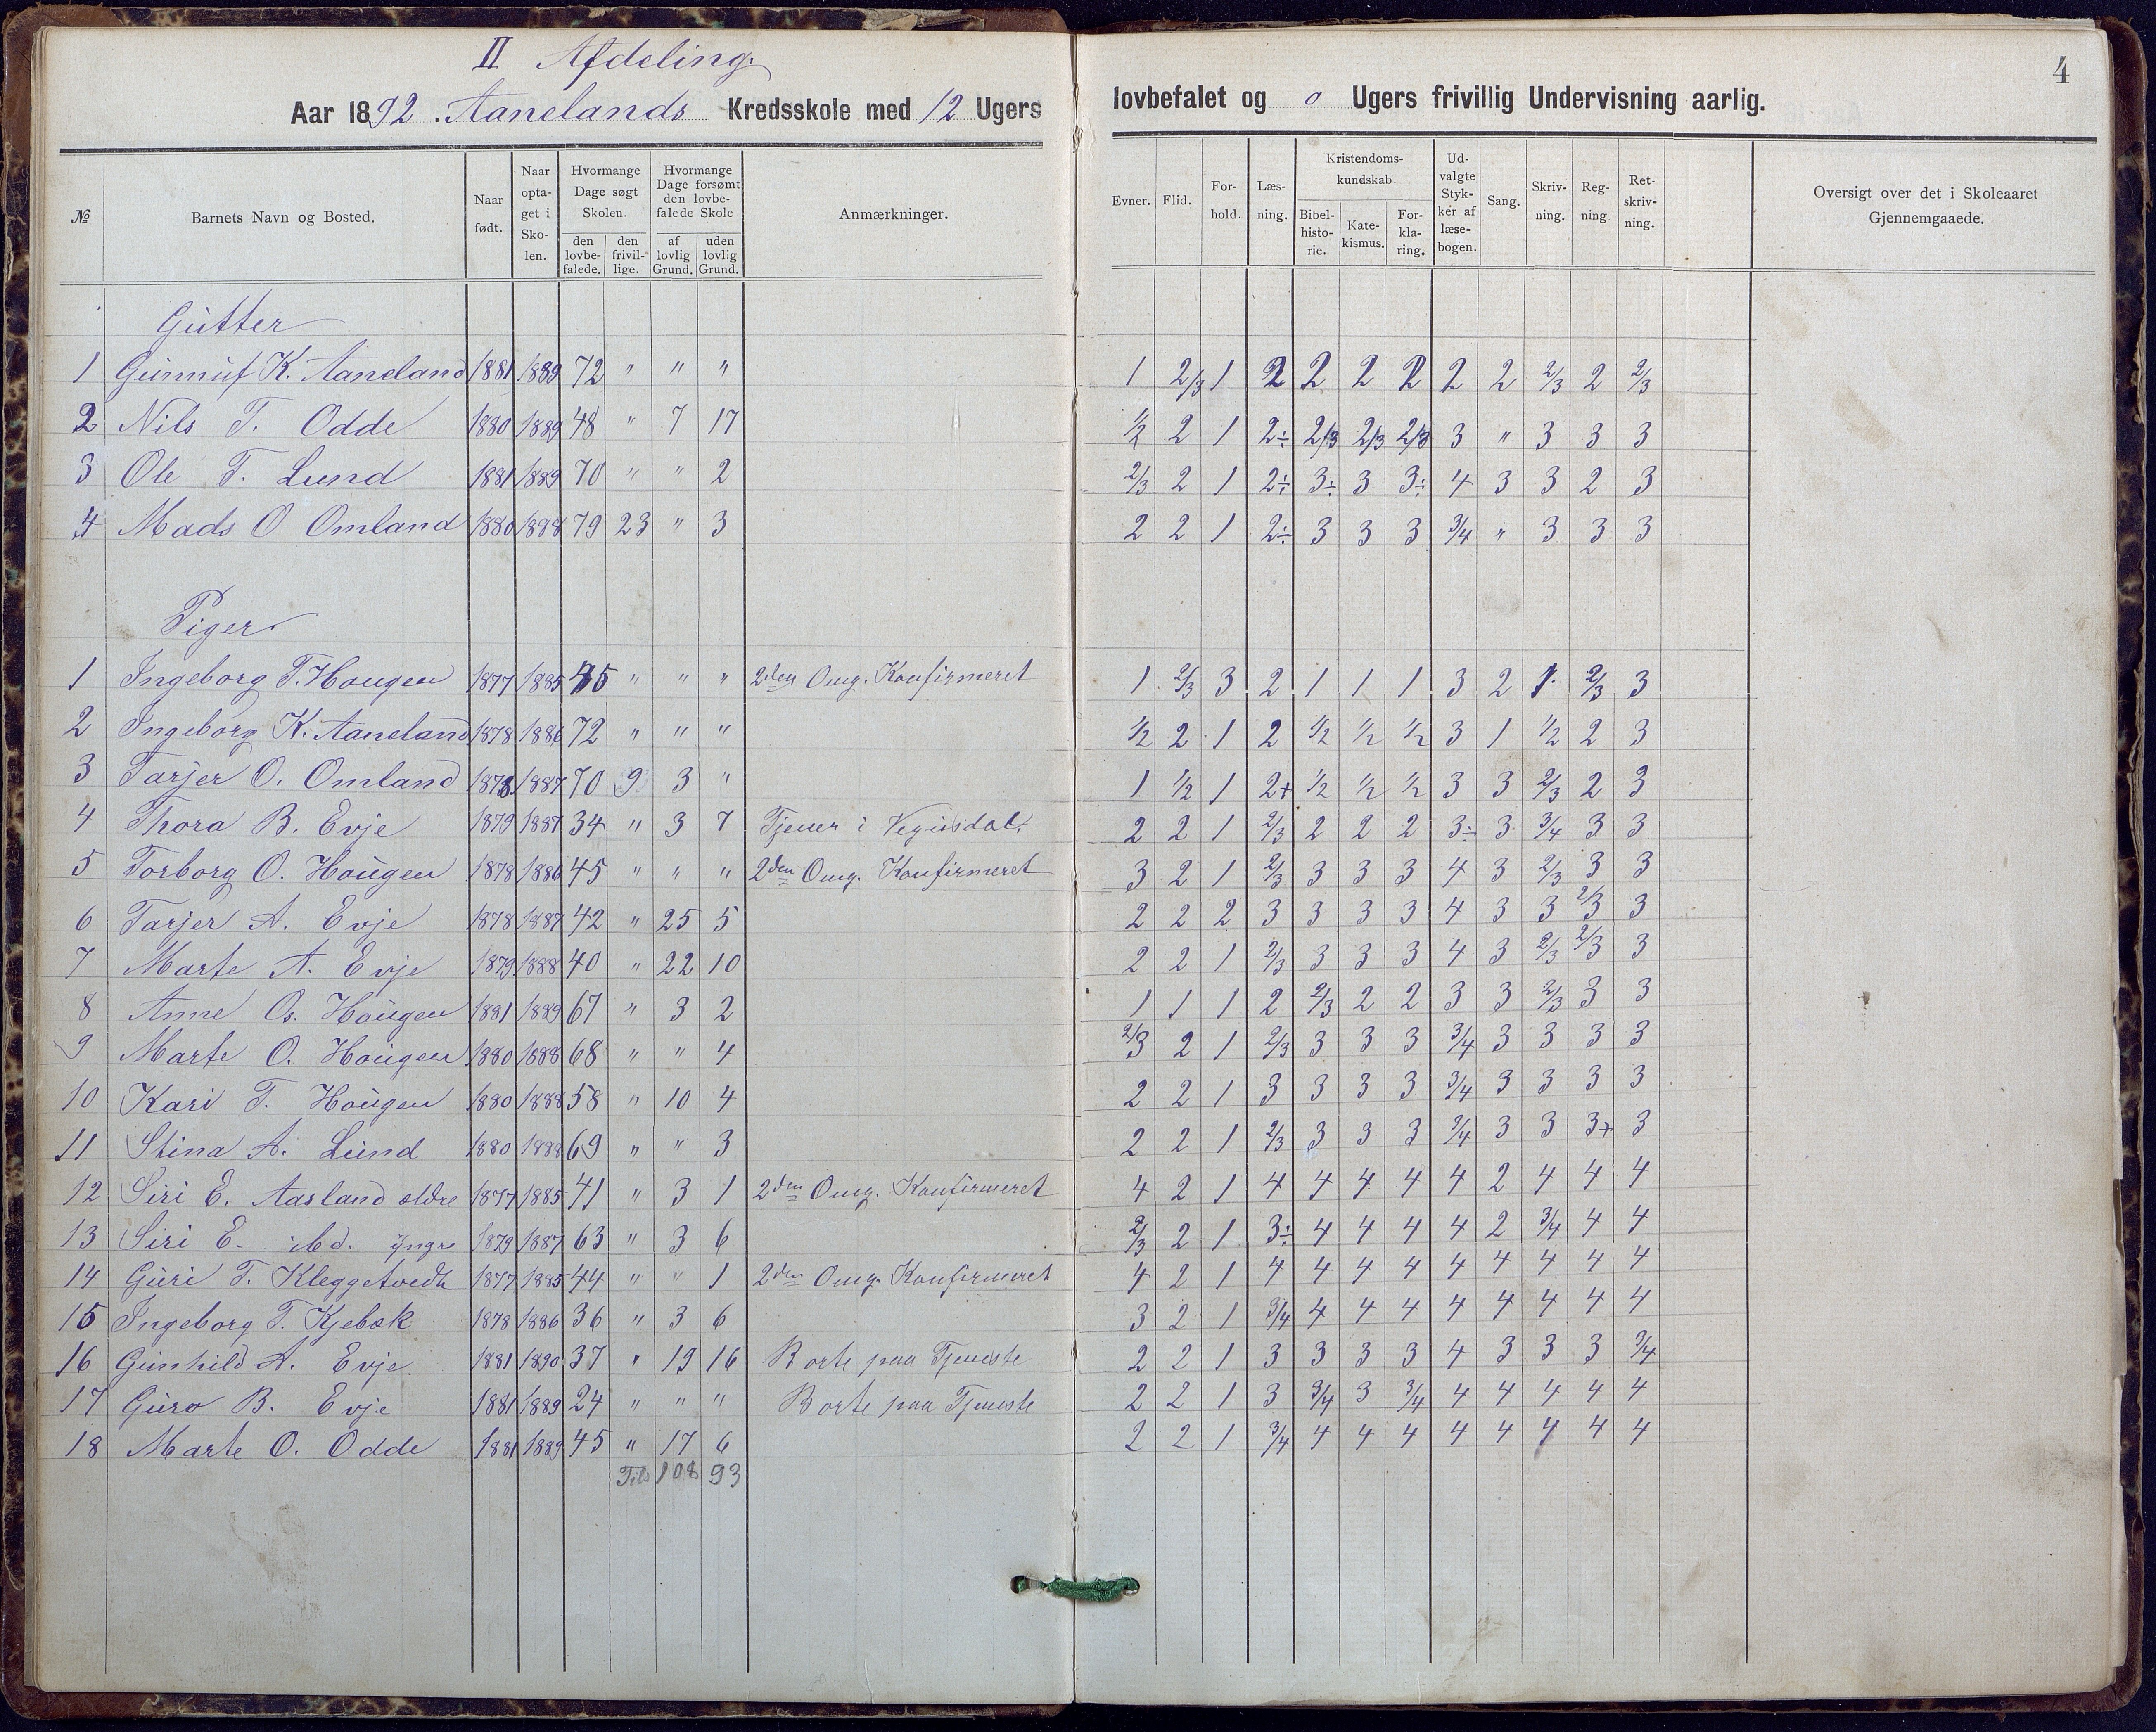 II Afdeling.
4
Aar 1892. Aanelands Kredsskole med 12 Ugers lovbefalet og 0 Ugers frivillig Undervisning aarlig.
№ | Barnets Navn og Bosted. | Naar født. | Naar optaget i Skolen. | Hvormange Dage søgt Skolen. den lovbefalede. | den frivillige. | Hvormange Dage forsømt den lovbefalede Skole af lovlig Grund. | uden lovlig Grund. | Anmærkninger. | Evner. | Flid. | Forhold. | Læsning. | Kristendomskundskab. Bibelhistorie. | Katekismus. | Forklaring. | Udvalgte Stykker af læsebogen. | Sang. | Skrivning. | Regning | Retskrivning. | Oversigt over det i Skoleaaret Gjennemgaaede.
Gutter
1 Gunnuf K. Aaneland 1881 1889 72 " " " 1 2/3 1 2 2 2 2 2 2 2/3 2 2/3
2 Nils T. Odde 1880 1889 48 " 7 17 1/2 2 1 2÷ 2/3 2/3 2/3 3 " 3 3 3
3 Ole T. Lund 1881 1889 70 " " 2 2/3 2 1 2÷ 3÷ 3 3÷ 4 3 3 2 3
4 Mads O Omland 1880 1888 79 23 " 3 2 2 1 2÷ 3 3 3 3/4 " 3 3 3
Piger
1 Ingeborg T. Hougen 1877 1885 45 " " " 2den Omg. Konfirmeret 1 2/3 3 2 1 1 1 3 2 1 2/3 3
2 Ingeborg K. Aaneland 1878 1886 72 " " " 1/2 2 1 2 1/2 1/2 1/2 3 1 1/2 2 3
3 Tarjer O. Omland 1878 1887 70 9 3 " 1 1/2 1 2+ 1/2 1/2 1/2 3 3 2/3 2 3
4 Thora B. Evje 1879 1887 34 " 3 7 Tjener i Vegusdal. 2 2 1 2/3 2 2 2 3÷ 3 3/4 3 3
5 Torborg O. Hougen 1878 1886 45 " " " 2den Omg. Konfirmeret 3 2 1 2/3 3 3 3 4 3 2/3 3 3
6 Tarjer A. Evje 1878 1887 42 " 25 5 2 2 2 3 3 3 3 4 3 3 2/3 3
7 Marte A. Evje 1879 1888 40 " 22 10 2 2 1 2/3 3 3 3 4 3 2/3 2/3 3
8 Anne Os. Hougen 1881 1889 67 " 3 2 1 1 1 2 2/3 2 2 3 3 2/3 3 3
9 Marte O. Hougen 1880 1888 68 " " 4 2/3 2 1 2/3 3 3 3 3/4 3 3 3 3
10 Kari T. Hougen 1880 1888 58 " 10 4 2 2 1 3 3 3 3 3/4 3 3 3 3
11 Stina A. Lund 1880 1888 69 " " 3 2 2 1 2/3 3 3 3 3/4 3 3 3+ 3
12 Siri E. Aasland ældre 1877 1885 41 " 3 1 2den Omg. Konfirmeret 4 2 1 4 4 4 4 4 2 4 4 4
13 Siri E. ibd. yngre 1879 1887 63 " 3 6 2/3 2 1 3÷ 4 4 4 4 2 3/4 4 4
14 Guri T. Kleggetvedt 1877 1885 44 " " 1 2den Omg. Konfirmeret 4 2 1 4 4 4 4 4 4 4 4 4
15 Ingeborg T. Kjebæk 1878 1886 36 " 3 6 3 2 1 3/4 4 4 4 4 4 4 4 4
16 Gunhild A. Evje 1881 1890 37 " 19 16 Borte paa Tjeneste 2 2 1 3 3 3 3 4 3 3 3 3/4
17 Guro B. Evje 1881 1889 24 " " " Borte paa Tjeneste 2 2 1 3 3/4 3 3/4 4 4 4 4 4
18 Marte O. Odde 1881 1889 45 " 17 6 2 2 1 3/4 4 4 4 4 4 4 4 4
Tils 108 93